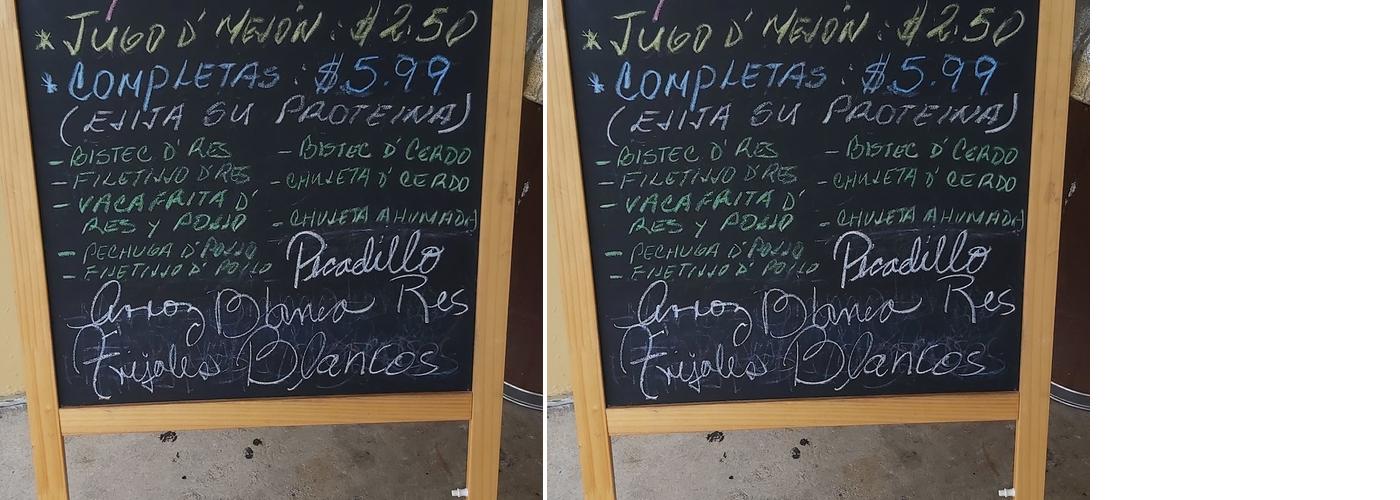 * JUGO D' MELÓN: $2.50
* COMPLETAS: $5.99
(ELIJA SU PROTEINA)
- BISTEC D' RES - BISTEC D' CERDO
- FILETILLO D' RES - CHULETA D' CERDO
- VACA FRITA D'
RES Y POLLO - CHULETA AHUMADA
- PECHUGA D' POLLO
- FILETILLO D' POLLO Picadillo
Arroz Blanco Res
Frijoles Blancos
* JUGO D' MELÓN: $2.50
* COMPLETAS: $5.99
(ELIJA SU PROTEINA)
- BISTEC D' RES - BISTEC D' CERDO
- FILETILLO D' RES - CHULETA D' CERDO
- VACA FRITA D'
RES Y POLLO - CHULETA AHUMADA
- PECHUGA D' POLLO
- FILETILLO D' POLLO Picadillo
Arroz Blanco Res
Frijoles Blancos